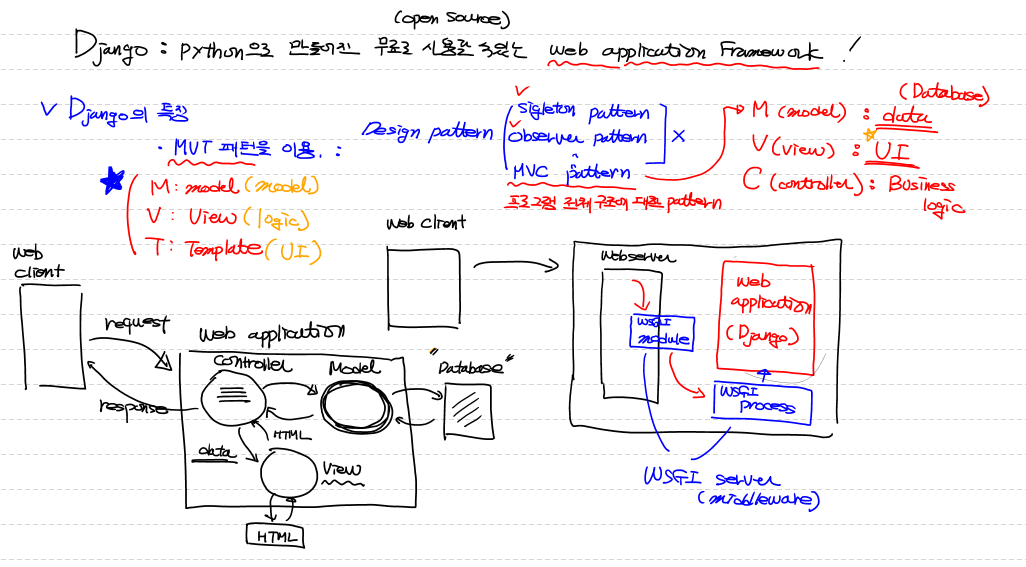 (open source)
Django : python으로 만들어진 무료로 사용할 수 있는 web application Framework !
V Django의 특징
· MVT 패턴을 이용. :
M : model (model)
V : View (logic)
T : Template (UI)
Design pattern
Sigleton pattern
Observer pattern
MVC pattern
X
프로그램 전체 구조에 대한 pattern
(Database)
M (model) : data
V (view) : UI
C (controller) : Business
logic
web
client
request
response
web application
controller
Model
"Database"
HTML
data
View
HTML
web client
webserver
WSGI
module
web
application
(Django)
WSGI
process
WSGI server
(middleware)